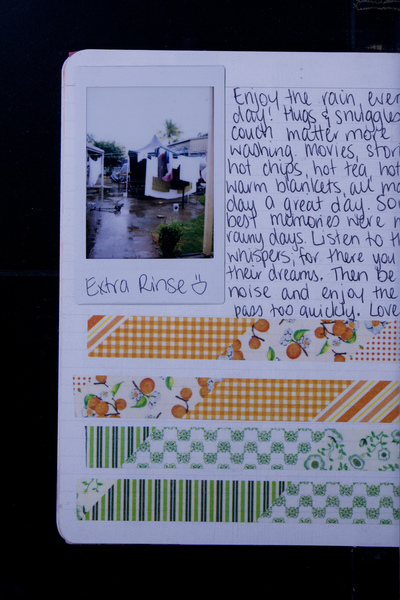 Extra Rinse
Enjoy the rain, ever
day! Hugs & snuggles
couch matter more
washing. Movies, stor
hot chips, hot tea, hot
warm blankets, all ma
day a great day. So
best memories were m
rainy days. Listen to th
whispers, for there you
their dreams. Then be
noise and enjoy the
pass too quickly. Love